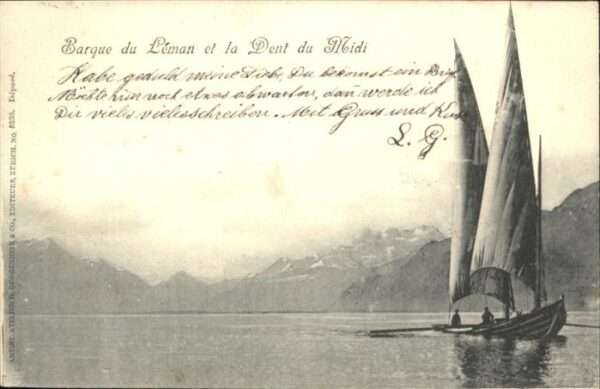 Barque du Léman et la Dent du Midi
Habe geduld meine Liebe, Du bekomst ein Brief
Möchte nun noch etwas abwarten, dan werde ich
Dir vieles vieles schreiben. Mit Gruss und Kuss
L. G.
& CO., EDITEURS, ZÜRICH. NO. Déposé.